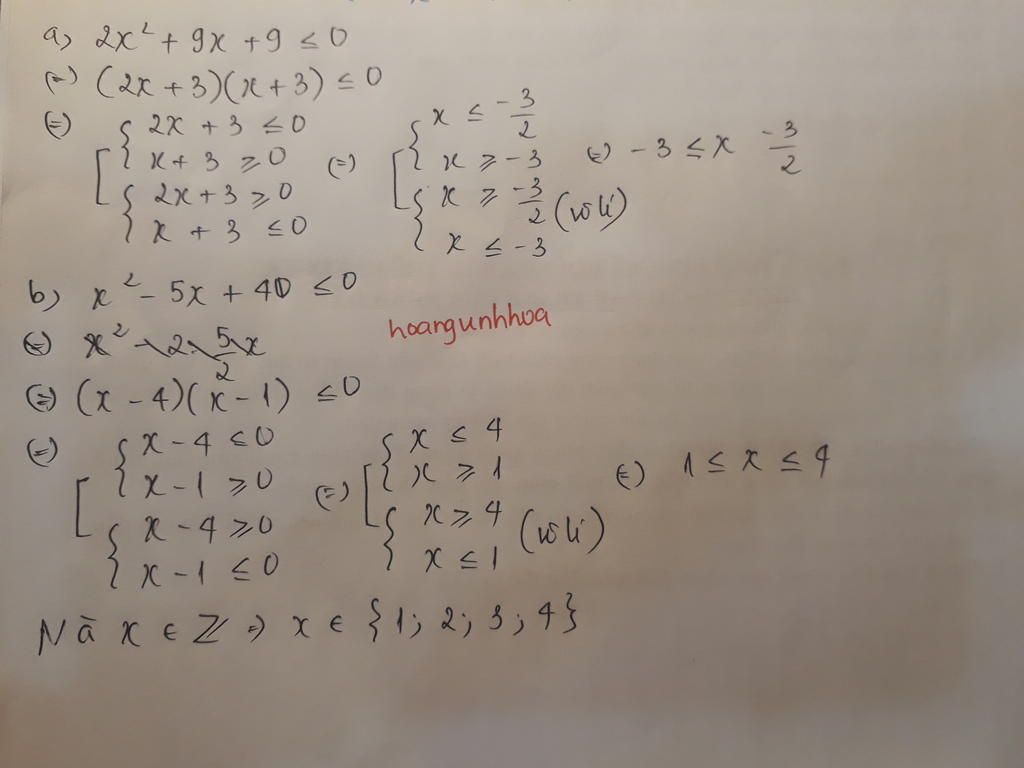 a) 2x² + 9x + 9 ≤ 0
(=) (2x + 3)(x + 3) ≤ 0
(=) [ { 2x + 3 ≤ 0 (=) [ { x ≤ -3/2 (=) -3 ≤ x -3/2
x + 3 ≥ 0 x ≥ -3
{ 2x + 3 ≥ 0 { x ≥ -3/2 (vô lí)
x + 3 ≤ 0 x ≤ -3
b) x² - 5x + 40 ≤ 0
hoangunhhoa
(=) x² - 2. 5/2 x
(=) (x - 4)(x - 1) ≤ 0
(=) [ { x - 4 ≤ 0 (=) [ { x ≤ 4 (=) 1 ≤ x ≤ 4
x - 1 ≥ 0 x ≥ 1
{ x - 4 ≥ 0 { x ≥ 4 (vô lí)
x - 1 ≤ 0 x ≤ 1
Mà x ∈ Z => x ∈ {1; 2; 3; 4}